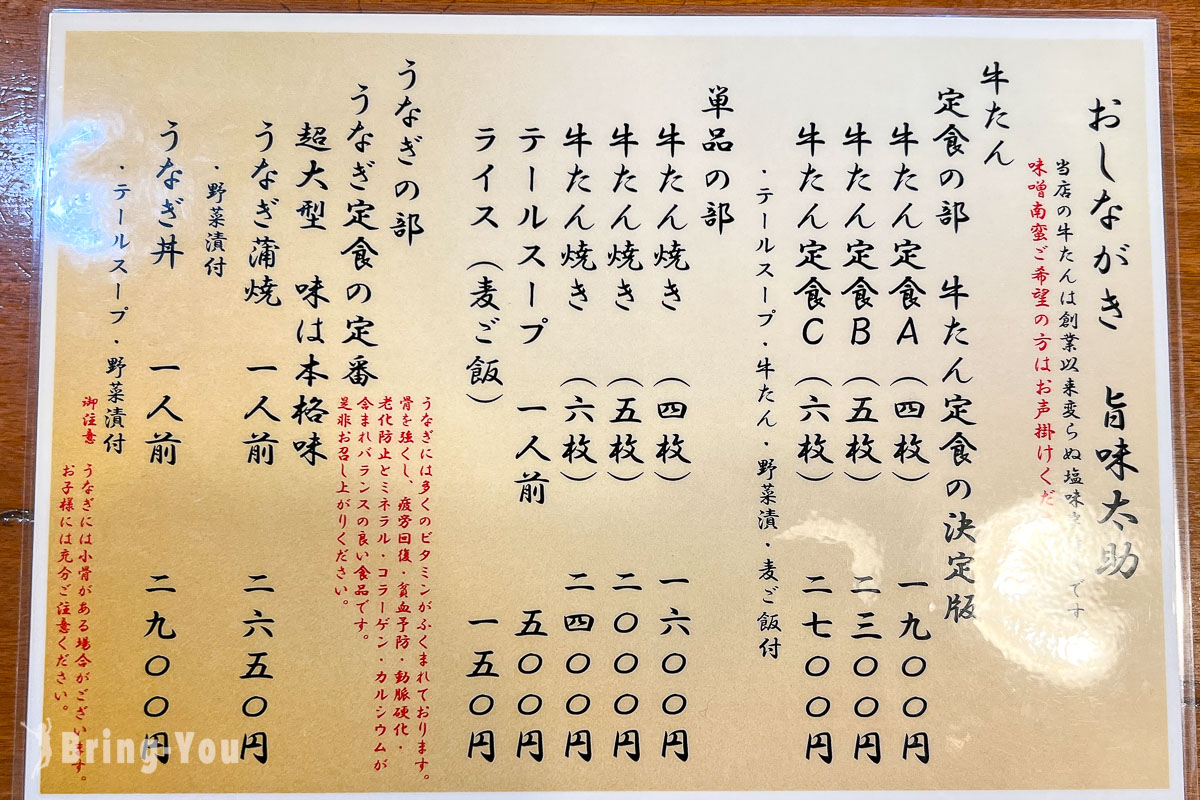 おしながき　旨味太助
当店の牛たんは創業以来変らぬ塩味
味噌南蛮ご希望の方はお声掛けくだ
牛たん
定食の部　牛たん定食の決定版
牛たん定食A（四枚）　一九〇〇円
牛たん定食B（五枚）　二三〇〇円
牛たん定食C（六枚）　二七〇〇円
・テールスープ・牛たん・野菜漬・麦ご飯付
単品の部
牛たん焼き（四枚）　一六〇〇円
牛たん焼き（五枚）　二〇〇〇円
牛たん焼き（六枚）　二四〇〇円
テールスープ　一人前　五〇〇円
ライス（麦ご飯）　一五〇円
うなぎの部
うなぎ定食の定番
うなぎには多くのビタミンがふくまれております。
骨を強くし、疲労回復・貧血予防・動脈硬化・
老化防止とミネラル・コラーゲン・カルシウムが
含まれバランスの良い食品です。
是非お召し上がりください。
超大型　味は本格味
うなぎ蒲焼　一人前　二六五〇円
・野菜漬付
うなぎ丼　一人前　二九〇〇円
・テールスープ・野菜漬付
御注意　うなぎには小骨がある場合がございます。
お子様には充分ご注意ください。
Bring-You